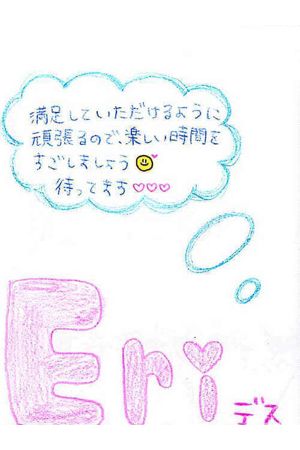 満足していただけるように
頑張るので、楽しい時間を
すごしましょう
待ってます♡♡♡
Eri
デス